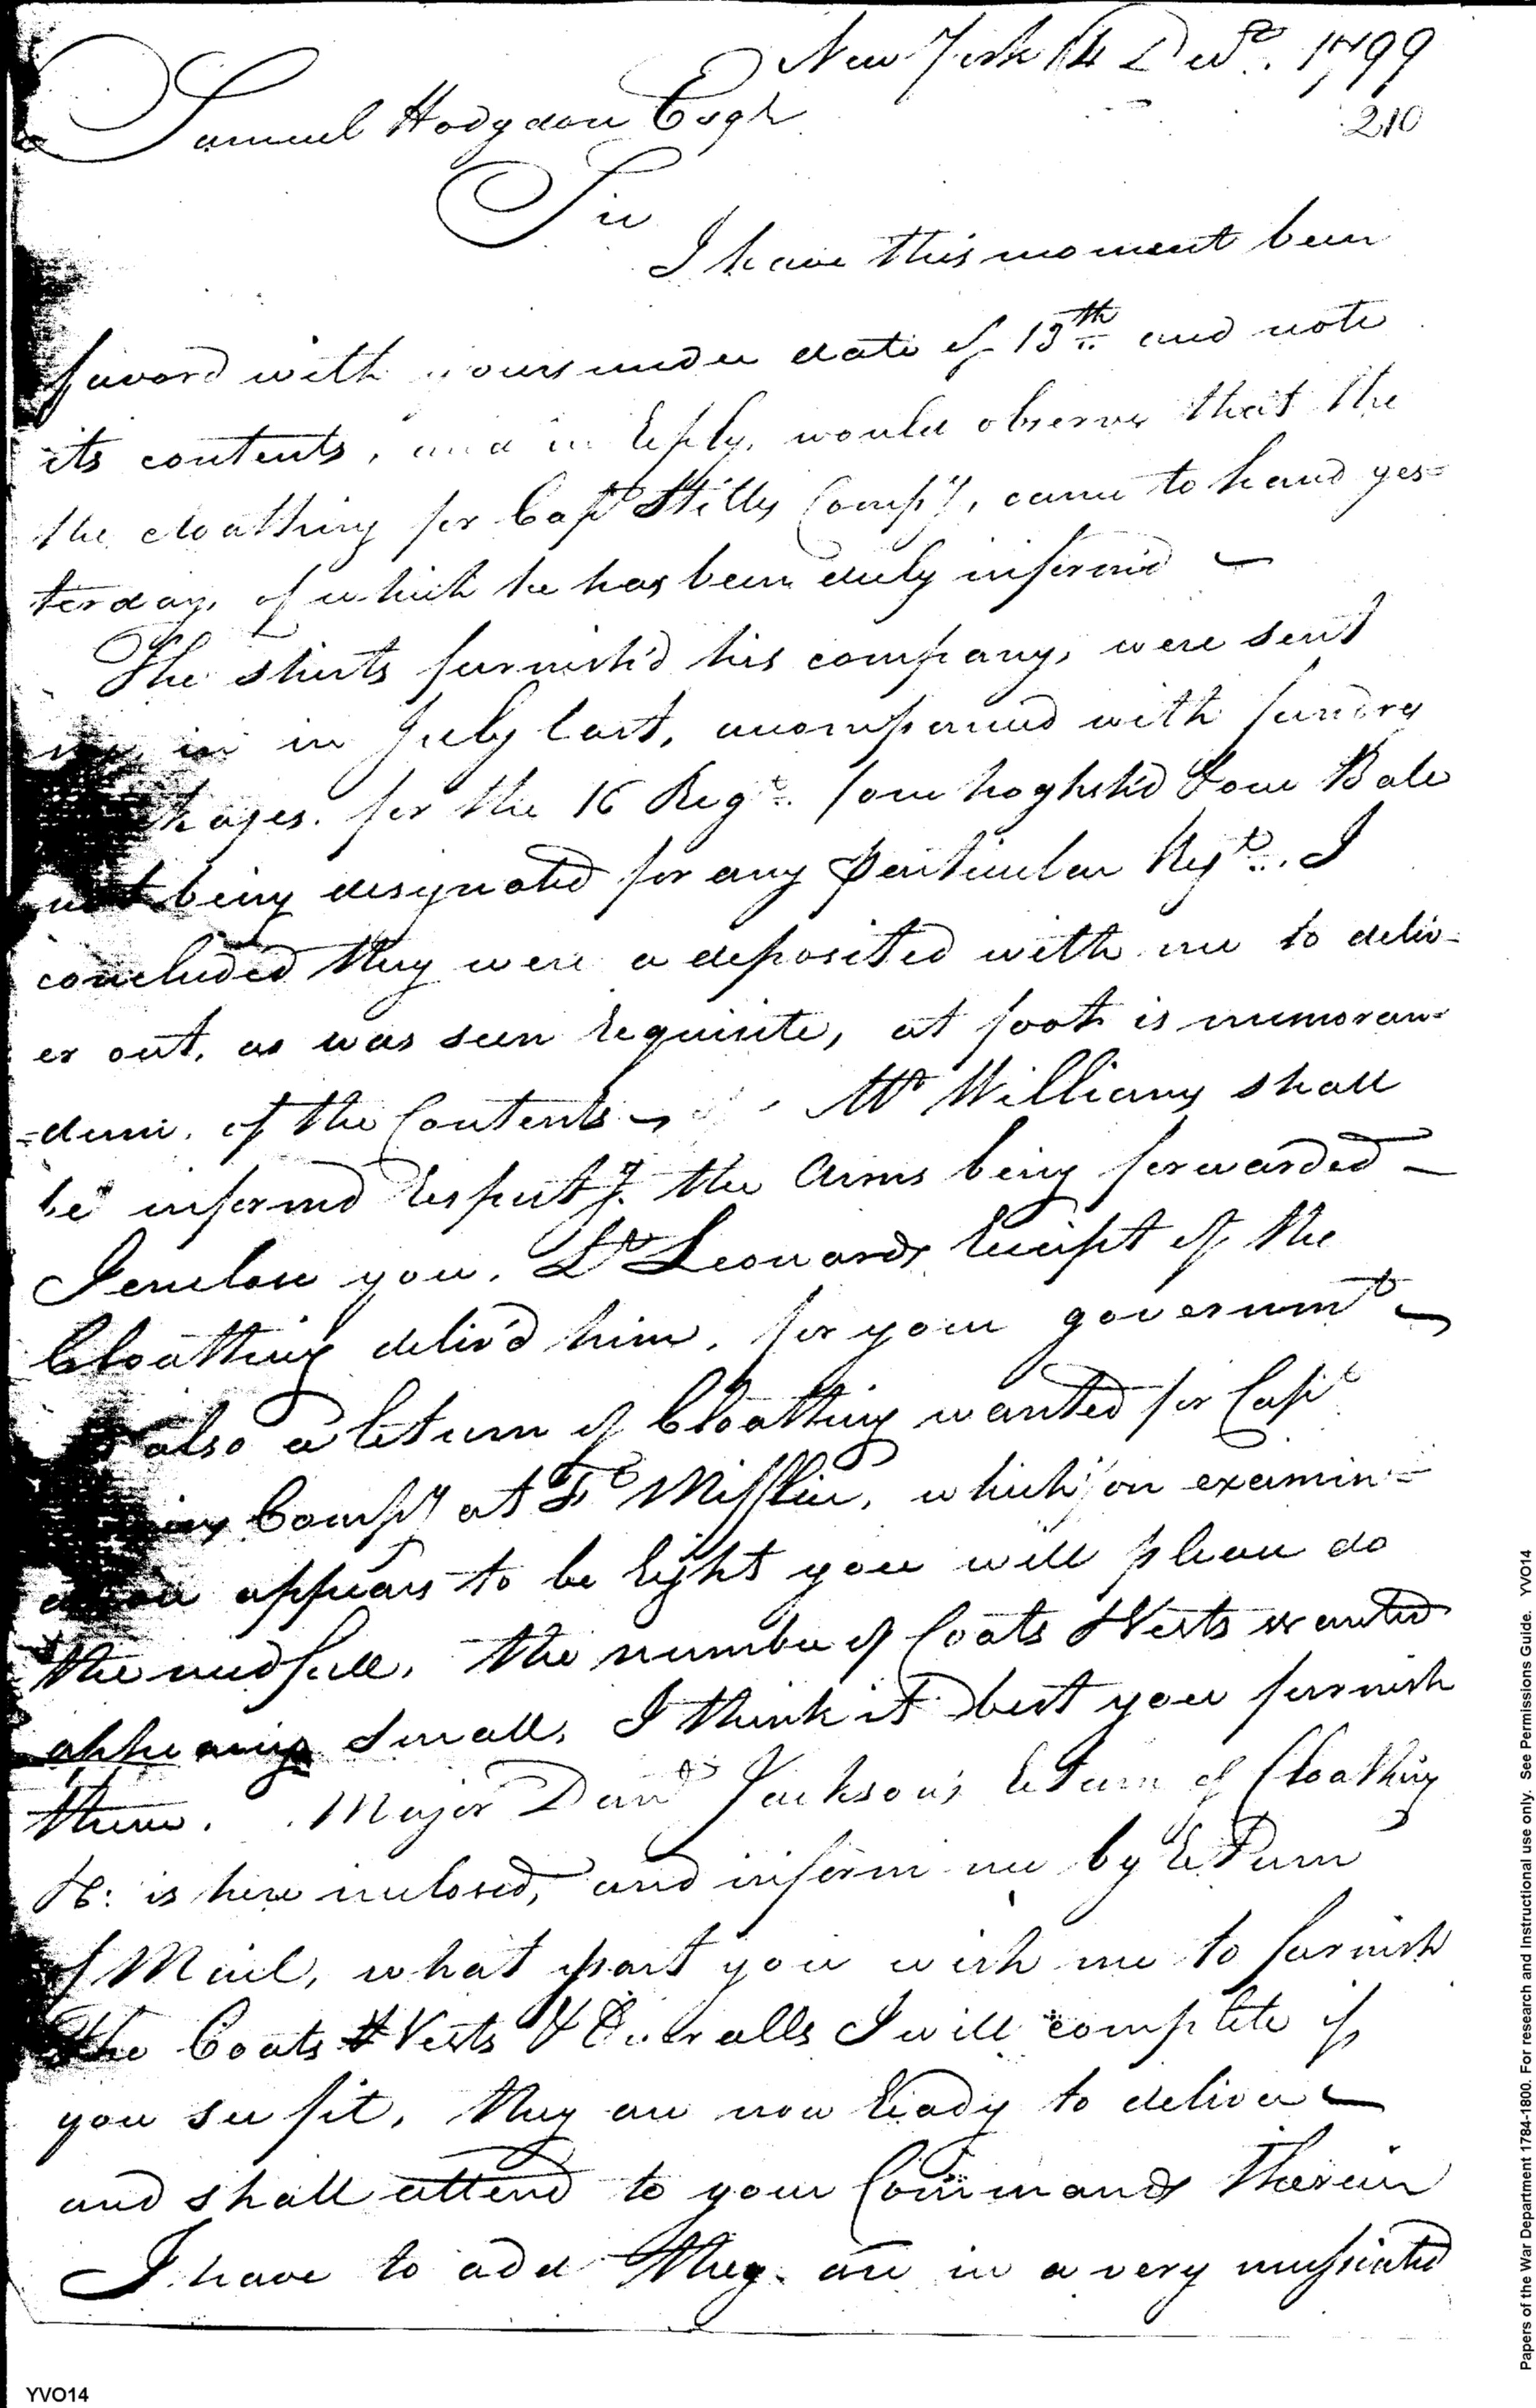 New York 14 Decr. 1799
210
Samuel Hodgdon Esqr
Sir
I have this moment been
favord with yours under date of 13th and note
its contents, and in reply, would observe that the
the cloathing for Capt Stilles Compy, came to hand yes=
terday, of which he has been duly inform'd
The shirts furnish'd his company, were sent
me in in July last, accompanied with sundry
for the 16 Regt. one hoghsh'd & one Bale
not being designated for any particular Regt. I
concluded they were a deposited with me to deliv-
er out, as was seen requisite, at foot is memoran-
=dum, of the Contents Mr Williams shall
be informd respectg. the Arms being forwarded
I enclose you, Lt Leonards receipt of the
Cloathing deliv'd him, for your governmt
also a return of Cloathing wanted for Capt
Compy at Ft Mifflin, which on examin=
appears to be right you will please do
the needfull, the number of Coats & Vests wanted
appearing small, I think it best you furnish
them. Major Danl Jackson's return of Cloathing
&c: is here inclosed, and inform me by return
of Mail, what part you wish me to furnish
The Coats & Vests & Overalls I will complete if
you see fit, they are now ready to deliver
and shall attend to your Commands therein
I have to add they are in a very
Papers of the War Department 1784-1800. For research and Instructional use only. See Permissions Guide. YVO14
YVO14